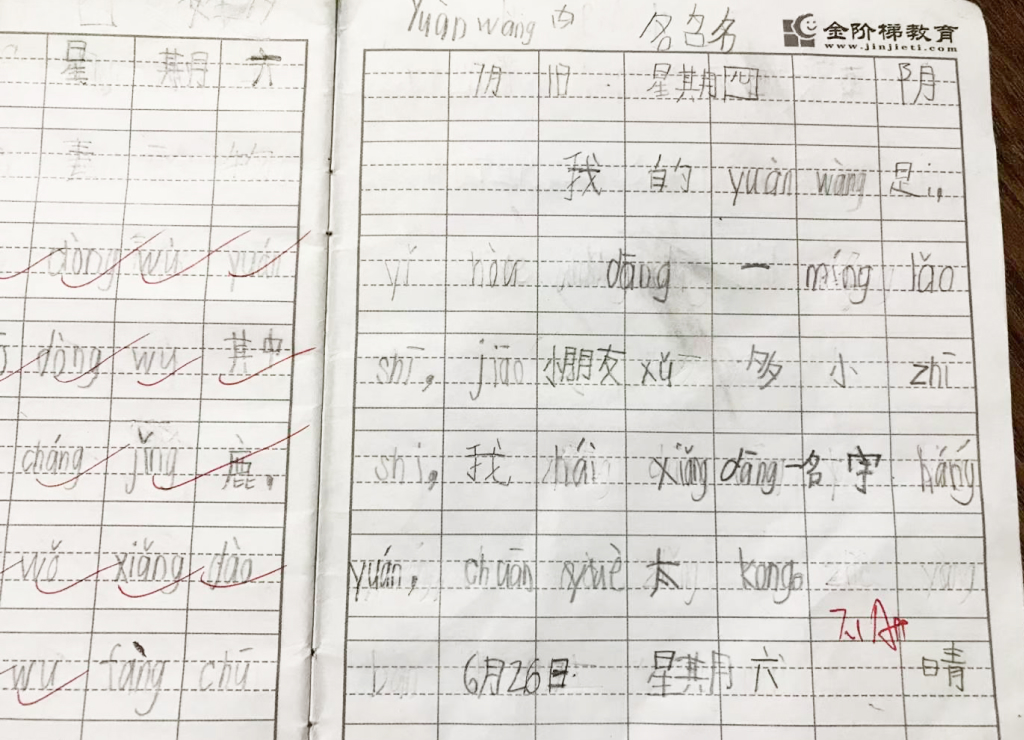 星 期 六
dòng wù yuán
dòng wu 其中
cháng jǐng 鹿,
wǒ xiǎng dào
wu fàng chū
Yuàn wàng 名名名
金阶梯教育
www.jinjieti.com
7月 1日 星期四 阴
我 的 yuàn wàng 是,,
yí hòu dāng 一 míng lǎo
shī, jiāo 小朋友 xǔ 多 小 zhī
shi, 我 hái xiǎng dāng 一名 宇 háng
yuán, chuān yuè 太 kong。
7.1 A+
6月26日 星期 六 晴